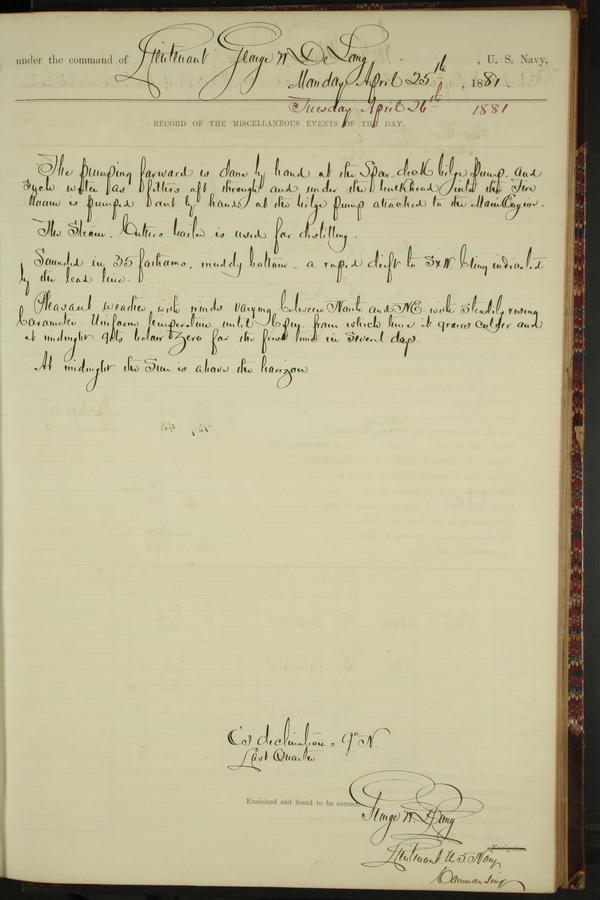 under the command of Lieutenant George W. De Long, U. S. Navy,
Monday April 25th, 1881.
Tuesday April 26th 1881
RECORD OF THE MISCELLANEOUS EVENTS OF THE DAY.
The pumping forward is done by hand at the Spar deck bilge pump, and
such water as filters aft through and under the bulkhead into the Fire
Room is pumped out by hand at the bilge pump attached to the Main Engine.
The Steam Cutters boiler is used for distilling.
Sounded in 35 fathoms, muddy bottom - a rapid drift to being indicated
by the lead line.
Pleasant weather with winds varying between North and NE with steadily rising
barometer. Uniform temperature until 6 p.m. from which time it grows colder and
at midnight gets below Zero for the first time in several days.
At midnight the Sun is above the horizon
declination = 9° N.
Last Quarter
Examined and found to be correct.
George W. De Long
Navigator.
Lieutenant U.S. Navy
Commanding